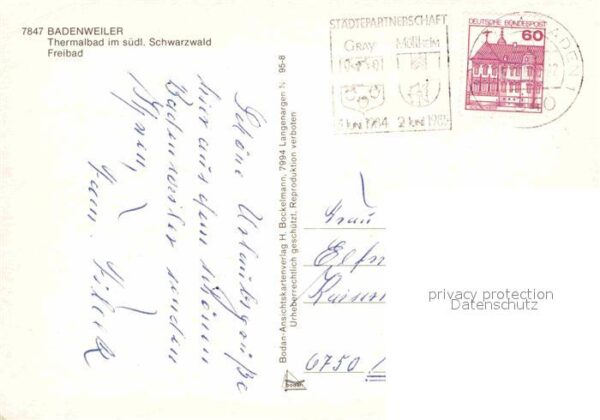 7847 BADENWEILER
Thermalbad im südl. Schwarzwald
Freibad
STÄDTEPARTNERSCHAFT
GRAY Müllheim
JUNI 1984 2 JUNI 1985
DEUTSCHE BUNDESPOST
60
Schöne Urlaubsgrüße
hier aus dem schönen
Badenweiler senden
Ihnen,
Fam.
Bodan-Ansichtskartenverlag H. Bockelmann, 7994 Langenargen N 95-8
Urheberrechtlich geschützt. Reproduktion verboten
bodan
Frau
Kaiser
6750
privacy protection
Datenschutz